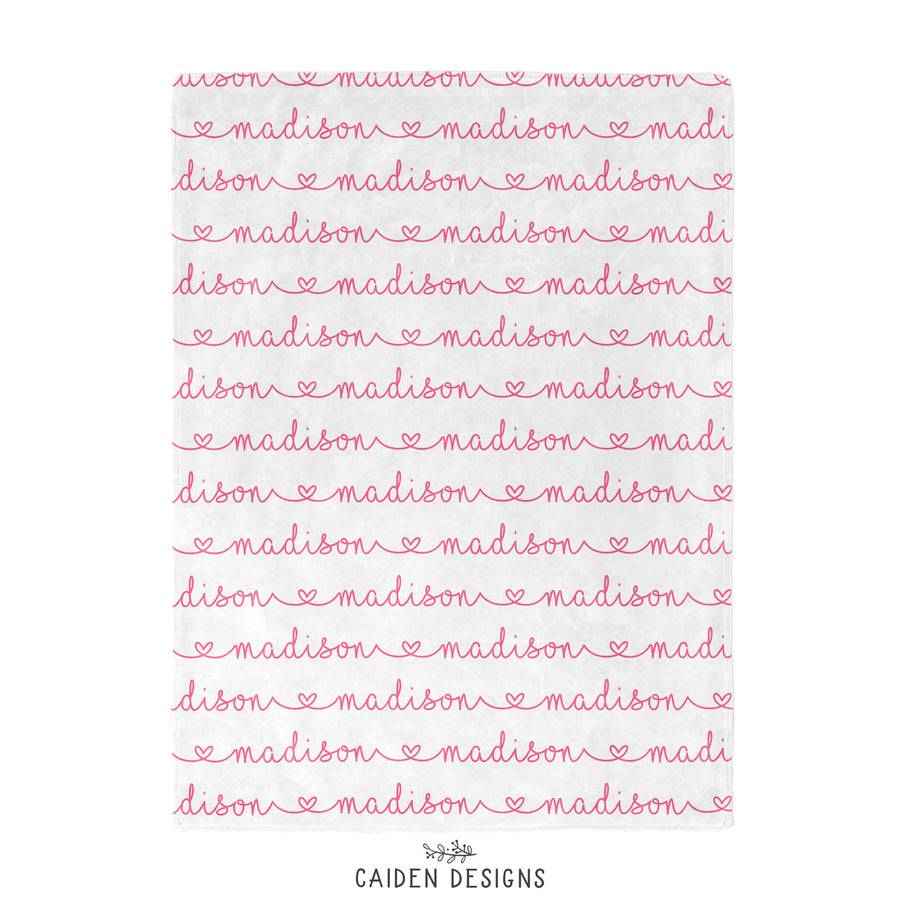 adison madison madison
madison madison madi
dison madison madison
madison madison madi
dison madison madison
madison madison madi
dison madison madison
madison madison madi
dison madison madison
madison madison madi
dison madison madison
madison madison madi
dison madison madison
madison madison madi
dison madison madison
CAIDEN DESIGNS